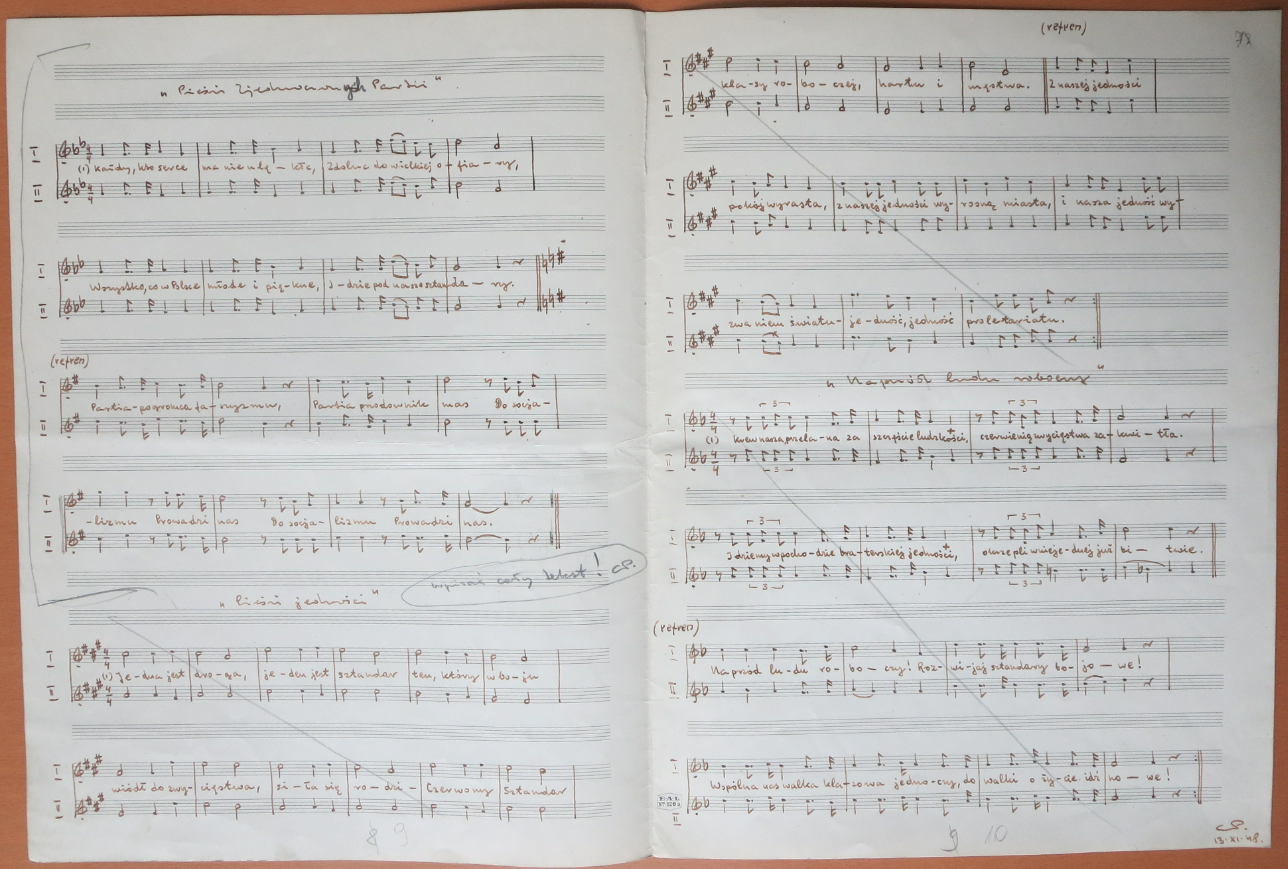 „Pieśń Zjednoczonych Partii"
I
(1) Każdy, kto serce ma nie ulę-kłe, Zdolne do wielkiej o-fia-ry,
II
I
Wszystko, co w Polsce młode i pię-kne, I-dzie pod nasze sztanda-ry.
II
(refren)
I
Partia-pogromca fa-szyzmu, Partia przodownik mas Do socja-
II
I
-lizmu Prowadzi nas Do socja-lizmu Prowadzi nas.
II
wpisać cały tekst! CP.
„Pieśń jedności"
I
(1) Je-dna jest dro-ga, je-den jest sztandar ten, który w bo-ju
II
I
wiódł do zwy-cięstwa, si-ła się ro-dzi- Czerwony Sztandar
II
8 9
72
(refren)
I
kla-sy ro-bo-czej, hartu i męstwa. Z naszej jedności
II
I
pokój wyrasta, z naszej jedności wy-rosną miasta, i nasza jedność wy-
II
I
zwa niem światu- je-dność, jedność proletariatu.
II
„Naprzód ludu roboczy"
I
3 3
(1) Krew nasza przela-na za szczęście ludzkości, czerwienią zwycięstwa za-kwi-tła.
II
3 3
I
3 3
I dziemy w pocho-dzie bra-terskiej jedności, okrzepli w nieje-dnej już bi-twie.
II
3 3
(refren)
I
Naprzód lu-du ro-bo-czy! Roz-wi-jaj sztandary bo-jo-we!
II
I
Wspólna nas walka kla-sowa jedno-czy, do walki o ży-cie idź no-we!
II
9 10
CP.
13·XI·48.